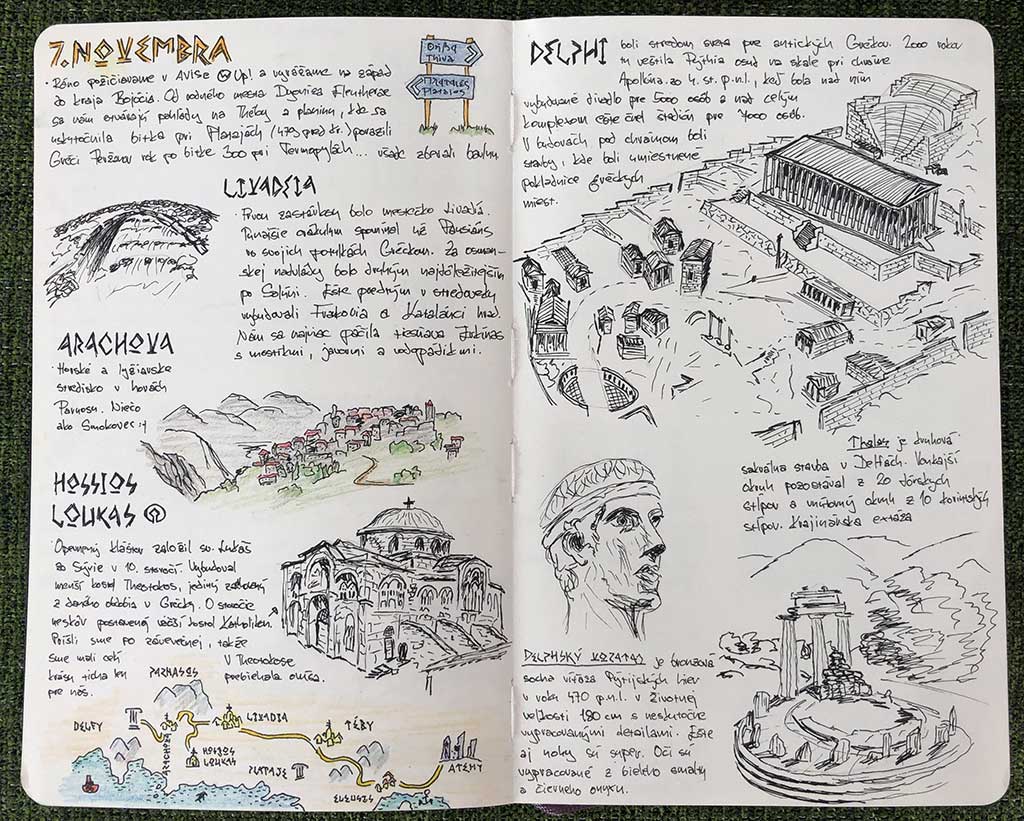 7. NOVEMBRA
Ráno požičiavame v Avise Up! a vyrážame na západ
do kraja Bojócia. Od rodného mesta Dyonisa Eleutherae
sa nám otvárajú pohľady na Théby a planinu, kde sa
uskutočnila bitka pri Platajách (479 pred Kr.) porazili
Gréci Peržanov rok po bitke 300 pri Termopylách... všade zberali bavlnu
Θήβα
Thiva
Πλαταιές
Plataies
LIVADEIA
Prvou zastávkou bolo mestečko Livadá.
Tunajšie orákulum spomínal už Pausanias
vo svojich potulkách Gréckom. Za osman-
skej nadvlády bolo druhým najdôležitejším
po Solúni. Ešte predtým v stredoveku
vybudovali Frankovia a Katalánci hrad.
Nám sa najviac páčila tiesňava Erkinas
s mostíkmi, javormi a vodopádikmi.
ARACHOVA
Horské a lyžiarske
stredisko v horách
Parnasu. Niečo
ako Smokovec :)
HOSSIOS
LOUKAS
Opevnený kláštor založil sv. Lukáš
zo Stýrie v 10. storočí. Vybudoval
menší kostol Theotokos, jediný zachovaný
z daného obdobia v Grécku. O storočie
neskôr postavený väčší kostol Katholikon.
Prišli sme po záverečnej, takže
sme mali celú
krásu ticha len
pre nás.
V Theotokose
prebiehala omša.
PARNASOS
DELFY
ARACHOVA
LIVADIA
HOSSIOS
LOUKAS
TÉBY
PLATAJE
ELEUSIS
ATÉNY
DELPHI boli stredom sveta pre antických Grékov. 2000 rokov
tu veštila Pýthia osud na skale pri chráme
Apollóna zo 4. st. p.n.l., keď bola nad ním
vybudované divadlo pre 5000 osôb a nad celým
komplexom ešte čnel štadión pre 7000 osôb.
V budovách pod chrámom boli
stavby, kde boli umiestnené
pokladnice gréckych
miest.
Tholos je kruhová
sakrálna stavba v Delfách. Vonkajší
okruh pozostával z 20 dórskych
stĺpov a vnútorný okruh z 10 korintských
stĺpov. Krajinárska extáza
DELPHSKÝ VOZATAJ je bronzová
socha víťaza Pýtijských hier
v roku 470 p.n.l. v životnej
veľkosti 180 cm s neskutočne
vypracovanými detailami. Ešte
aj nohy sú super. Oči sú
vypracované z bieleho smaltu
a čierneho onyxu.